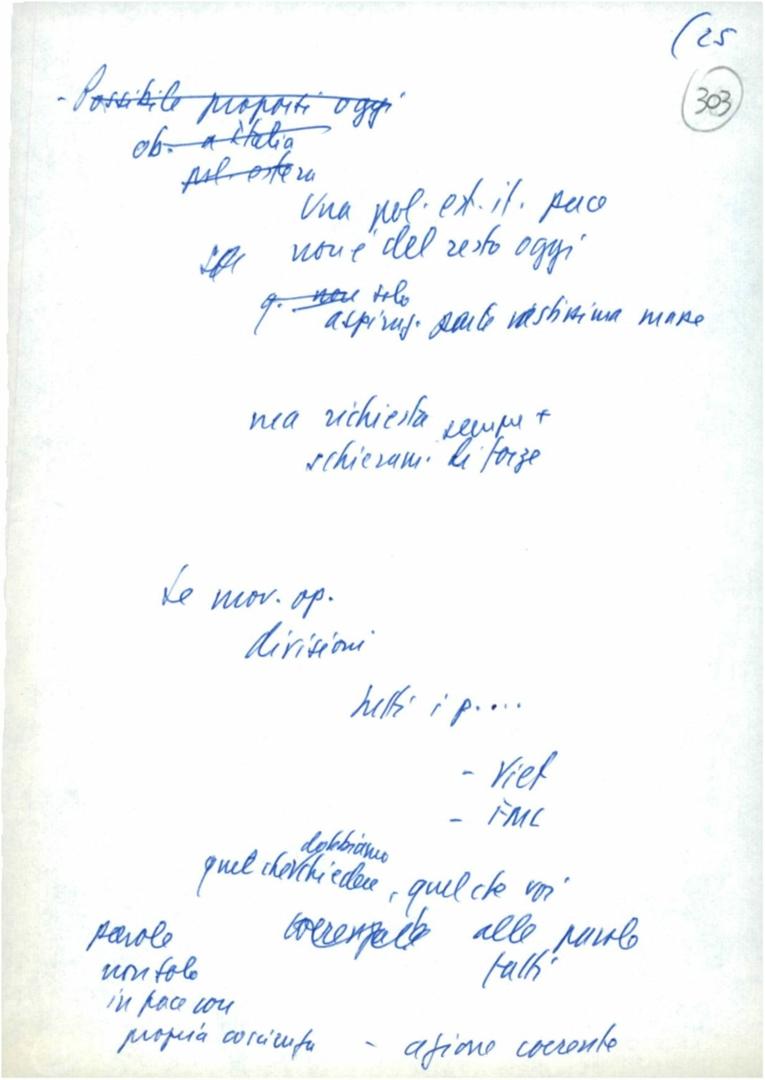 (25
303
- Possibile proposti oggi
ob. a Italia
pol. estera
Una pol. est. it. pace
non è del resto oggi
q. non solo
aspiraz. parte vastissima masse
ma richiesta sempre +
schieram. di forze
Le mov. op.
divisioni
tutti i p....
- Viet
- FMC
dobbiamo
quel che chiedere, quel che voi
parole alle parole
non solo fatti
in pace con
propria coscienza - azione coerente